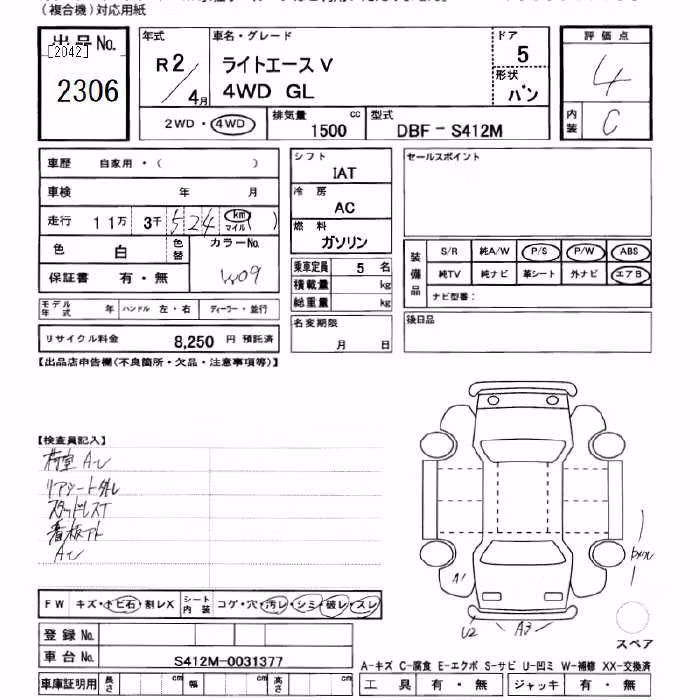 (複合機)対応用紙
出品No.
[2042]
2306
年式
R2/4月
車名・グレード
ライトエース V
4WD GL
ドア
5
形状
バン
評価点
4
内装
C
2WD・4WD
排気量
1500 cc
型式
DBF - S412M
車歴 自家用・( )
車検 年 月
走行 11万 3千 524 km マイル ( )
色 白 色替
カラーNo.
W09
保証書 有・無
モデル年式 年 ハンドル 左・右 ディーラー・並行
リサイクル料金 8,250 円 預託済
シフト
IAT
冷房
AC
燃料
ガソリン
乗車定員 5 名
積載量 kg
総重量 kg
名変期限
月 日
セールスポイント
装備品
S/R 純A/W P/S P/W ABS
純TV 純ナビ 革シート 外ナビ エアB
ナビ型番:
後日品
【出品店申告欄(不良箇所・欠品・注意事項等)】
【検査員記入】
荷室 A-U
リアシート外し
スタッドレスT
看板アト
AU
A1
U2
A3
スペア
FW キズ・トビ石・割レX
シート内装 コゲ・穴・汚レ・シミ・破レ・スレ
登録No.
車台No. S412M-0031377
車庫証明用 長さ cm 幅 cm 高さ cm
A-キズ C-腐食 E-エクボ S-サビ U-凹ミ W-補修 XX-交換済
工具 有・無 ジャッキ 有・無